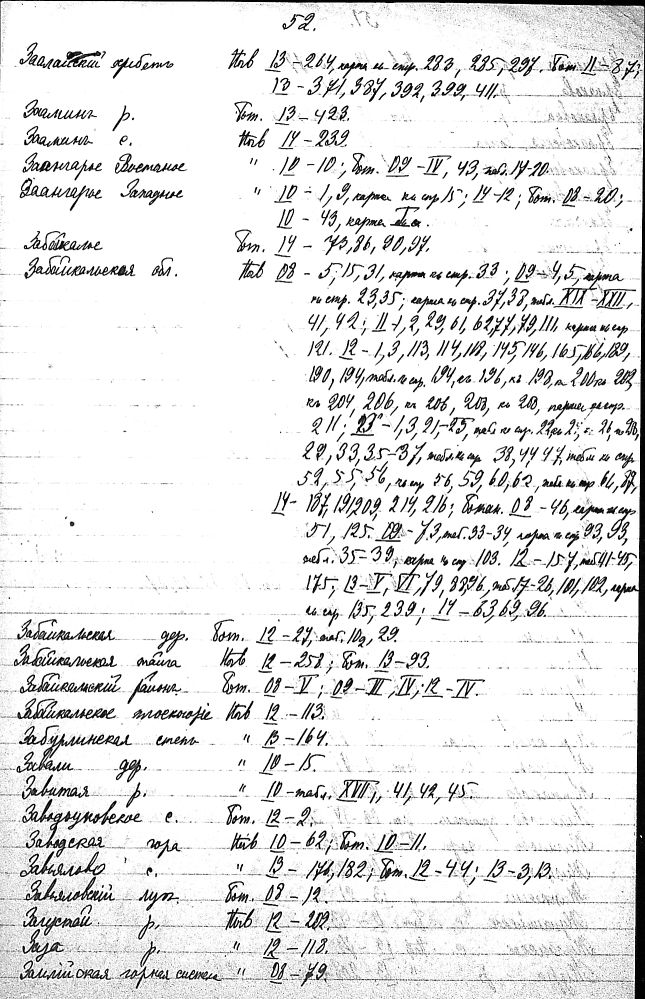 52.
Заалайскій хребетъ Почв 13 - 264, карта къ стр. 283, 285, 297. Бот. 11 - 87;
13 - 371, 387, 392, 399, 411.
Зааминъ р. Бот. 13 - 423.
Зааминъ с. Почв 14 - 239.
Заангарье Восточное " 10 - 10; Бот. 09 - IV, 43, табл. 17-20.
Заангарье Западное " 10 - 1, 9, карта къ стр 15; 14 - 12; Бот. 08 - 20;
10 - 43, карта
Забайкалье Бот. 14 - 73, 86, 90, 97.
Забайкальская обл. Почв 08 - 5, 15, 31, карта къ стр. 33; 09 - 4, 5, карта
къ стр. 23, 35; карта къ стр. 37, 38, табл. XIX - XXII,
41, 42; 11 - 1, 2, 29, 61, 62, 77, 79, 111, карта къ стр
121. 12 - 1, 3, 113, 114, 118, 145, 146, 165, 166, 189,
190, 194, табл. къ стр. 194, къ 196, къ 198, къ 200, къ 202,
къ 204, 206, къ 206, 208, къ 208, карта къ стр.
211; 13 - 1, 3, 21, - 25, табл къ стр. 22,
29, 33, 35 - 37, табл. къ стр 38, 44, 47, табл къ стр
52, 55, 56, къ стр 56, 59, 60, 62, табл. къ стр
14 - 187, 191, 209, 214, 216; Ботан. 08 - 46, карта къ стр
51, 125. 09 - 73, таб. 33-34, карта къ стр 93, 93,
табл. 35 - 39, карта къ стр 103. 12 - 157, таб 41-45,
175; 13 - V, VI, 79, 88, 96, таб. 17 - 26, 101, 102, карта
къ стр. 135, 239; 14 - 63, 69, 96.
Забайкальская дер. Бот. 12 - 27, таб. 10, 29.
Забайкальская тайга Почв 12 - 258; Бот. 13 - 93.
Забайкальскій районъ Бот. 08 - V; 09 - III, IV; 12 - IV.
Забайкальское плоскогоріе Почв 12 - 113.
Забурлинская степь " 13 - 164.
Завали дер. " 10 - 15.
Завитая р. " 10 - табл. XVII, 41, 42, 45.
Заводоуковское с. Бот. 12 - 2.
Заводская гора Почв 10 - 62; Бот. 10 - 11.
Завьялово с. " 13 - 176, 182; Бот. 12 - 44; 13 - 3, 13.
Завьяловскій луг. Бот. 08 - 12.
Загустай р. Почв 12 - 202.
Заза р. " 12 - 118.
Заилійская горная система " 08 - 79.